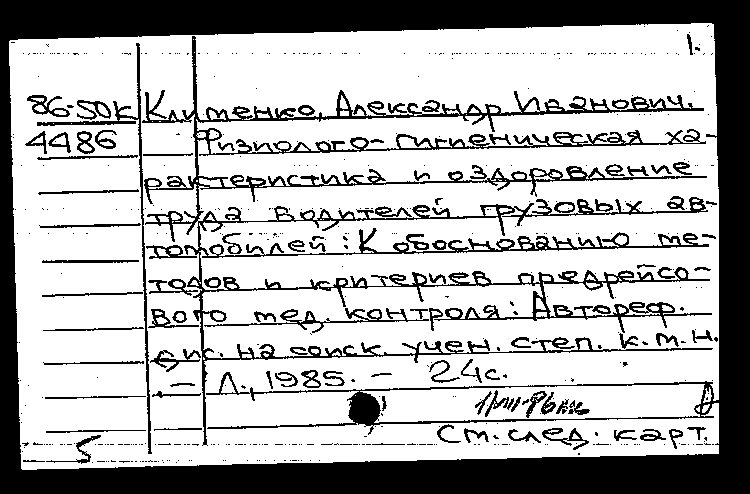 1.
86-50К Клименко, Александр Иванович.
4486 Физиолого-гигиеническая ха-
рактеристика и оздоровление
труда водителей грузовых ав-
томобилей: К обоснованию ме-
тодов и критериев предрейсо-
вого мед. контроля: Автореф.
дис. на соиск. учен. степ. к.м.н.
.— Л., 1985. — 24с.
См. след. карт.
5